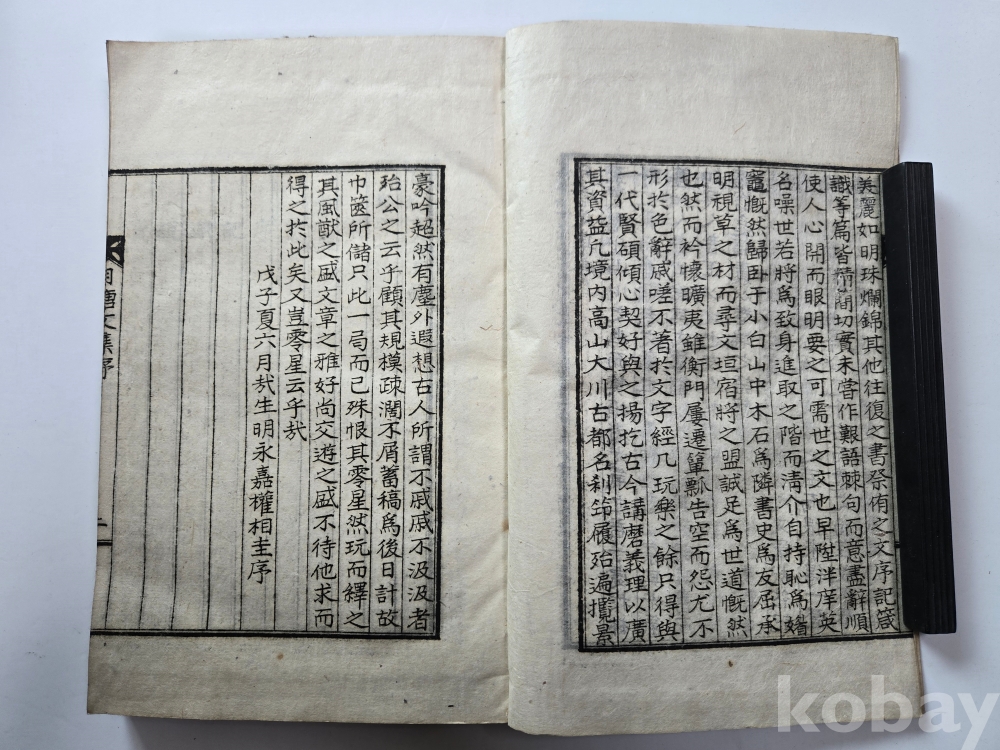 美麗如明珠爛錦其他往復之書祭侑之文序記箴
識等篇皆簡切實未嘗作艱語棘句而意盡辭順
使人心開而眼明要之可需世之文也早陞泮庠英
名噪世若將爲致身進取之階而淸介自持恥爲媚
竈慨然歸卧于小白山中木石爲隣書史爲友屈承
明視草之材而尋文垣宿將之盟誠足爲世道慨然
也然而衿懷曠夷雖衡門屢遷簞瓢告空而怨尤不
形於色辭戚嗟不著於文字經几玩樂之餘只得與
一代賢碩傾心契好與之揚扢古今講磨義理以廣
其資益凢境内高山大川古都名刹笻履殆遍攬景
豪吟超然有塵外遐想古人所謂不戚戚不汲汲者
殆公之云乎顧其規模疎濶不屑蓄稿爲後日計故
巾篋所儲只此一局而已殊恨其零星然玩而繹之
其風猷之盛文章之雅好尚交遊之盛不待他求而
得之於此矣又豈零星云乎哉
戊子夏六月哉生明永嘉權相圭序
文集序
二
kobay